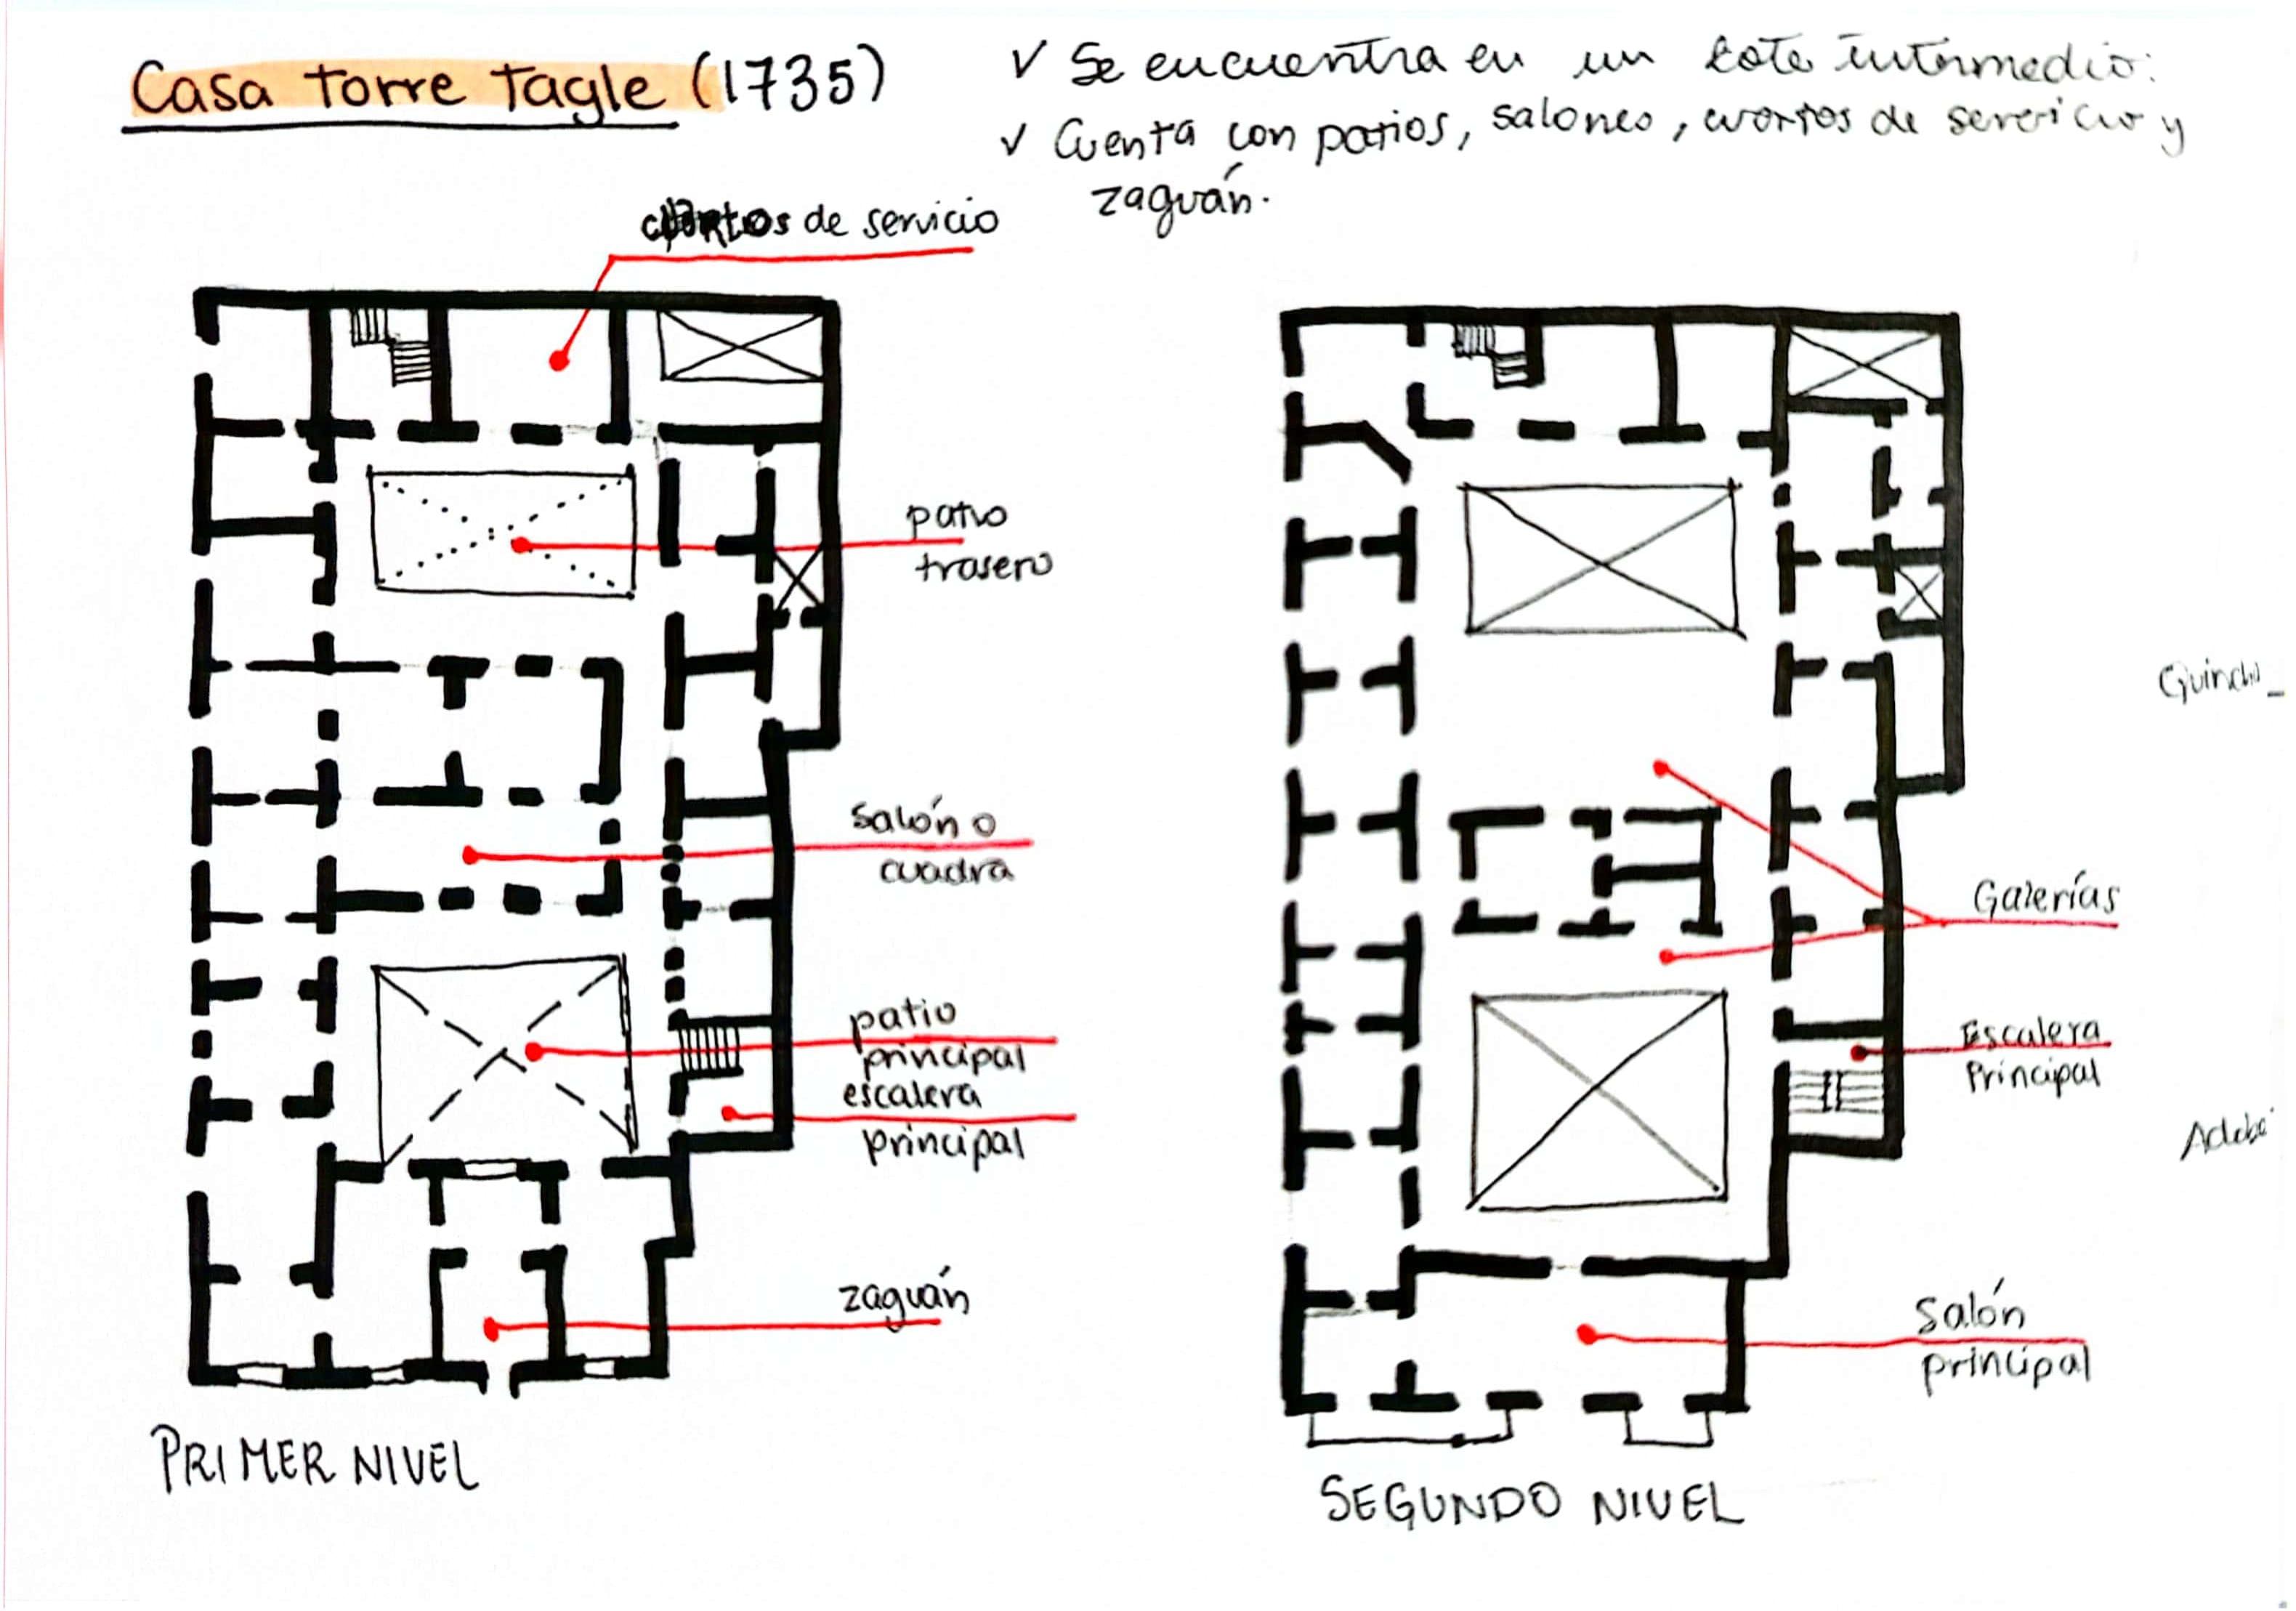 Casa torre tagle (1735)
✓ Se encuentra en un lote intermedio:
✓ Cuenta con patios, salones, cuartos de servicio y
zaguán.
cuartos de servicio
patio
trasero
salón o
cuadra
patio
principal
escalera
principal
zaguán
PRIMER NIVEL
Galerías
Escalera
Principal
Salón
principal
SEGUNDO NIVEL
Adobe